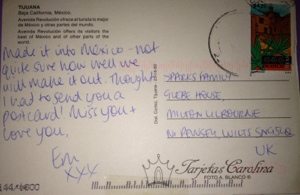 TIJUANA
Baja California, México.
Avenida Revolución ofrece al turista lo mejor
de México y otras partes del mundo.
Avenida Revolución offers its visitors the
best of México and of other parts of the
world.
Made it into Mexico - not
quite sure how well we
will make it out. Thought
I had to send you a
postcard! Miss you +
Love you,
Em
xxx
SPARKS FAMILY
GLEBE HOUSE,
MILTON LILBOURNE
Nr PEWSEY, WILTS
UK
Tarjetas Carolina
FOTO A. BLANCO R.